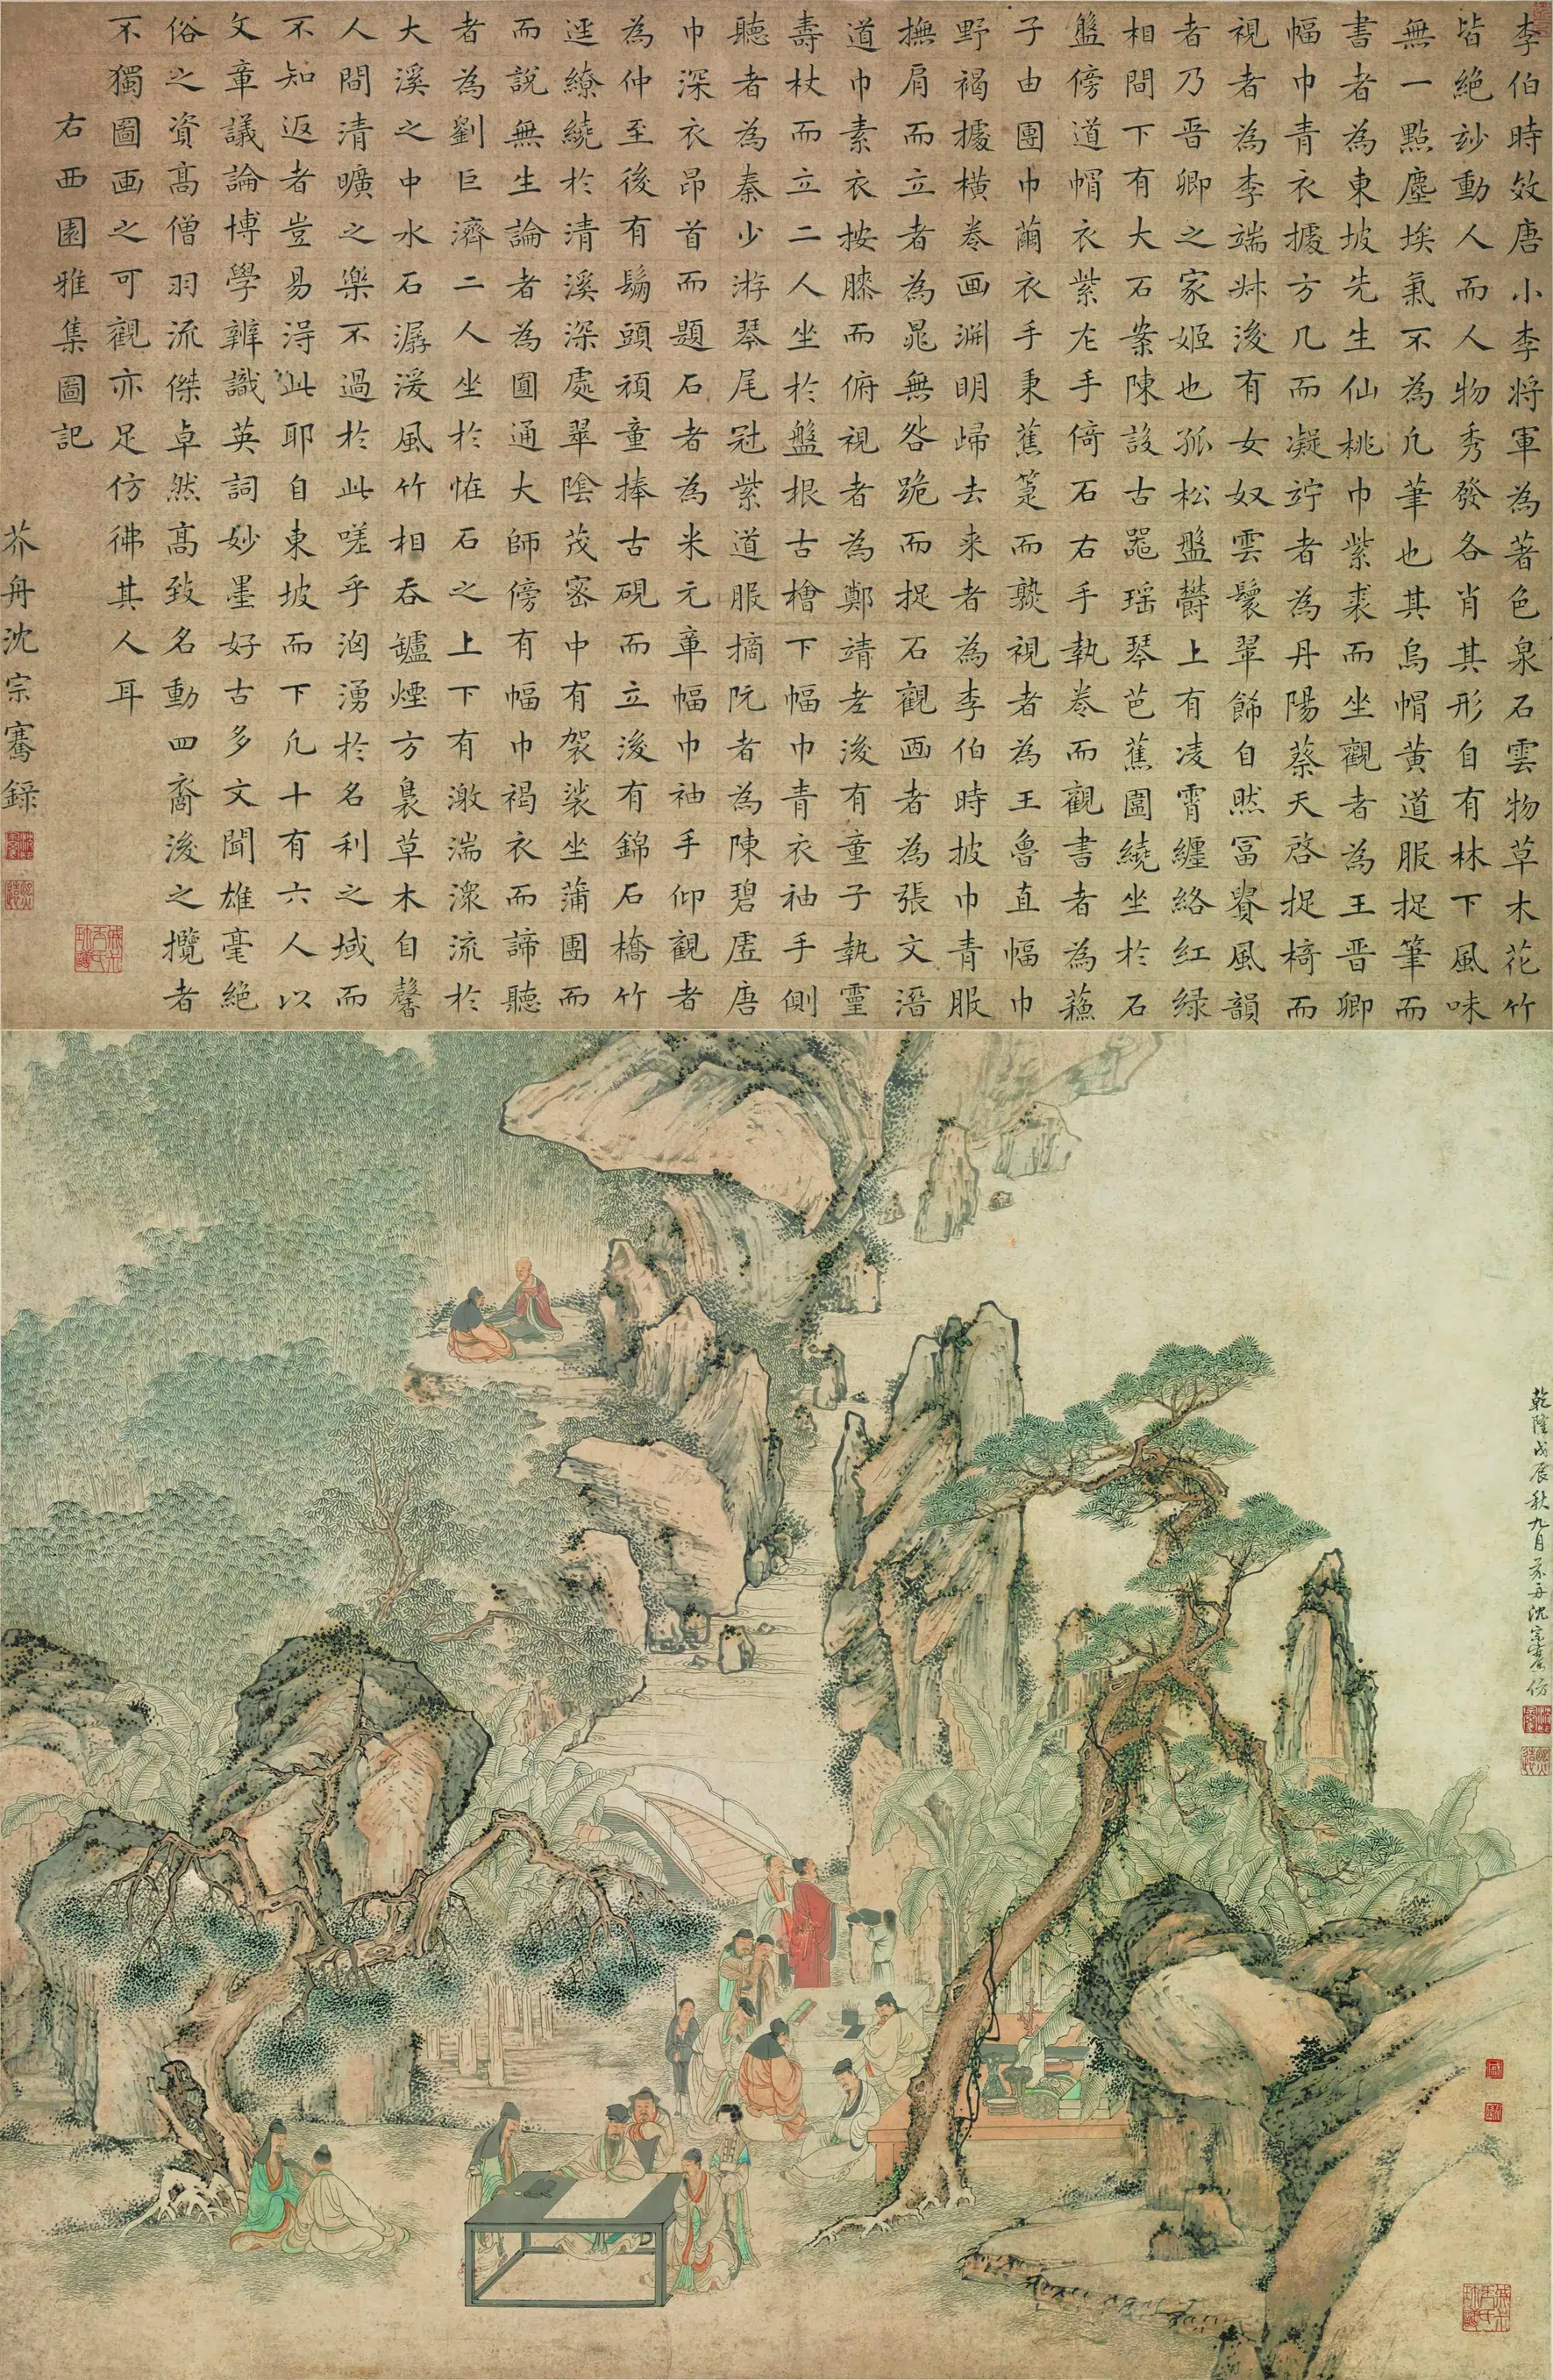 李伯時效唐小李將軍為著色泉石雲物草木花竹
皆絕妙動人而人物秀發各肖其形自有林下風味
無一點塵埃氣不為凡筆也其烏帽黃道服捉筆而
書者為東坡先生仙桃巾紫裘而坐觀者為王晋卿
幅巾青衣據方几而凝竚者為丹陽蔡天啓捉椅而
視者為李端叔後有女奴雲鬟翠飾自然冨貴風韻
者乃晋卿之家姬也孤松盤鬱上有凌霄纏絡紅緑
相間下有大石案陳設古器瑤琴芭蕉圍繞坐於石
盤傍道帽衣紫左手倚石右手執卷而觀書者為蘇
子由團巾繭衣手秉蕉箑而熟視者為王魯直幅巾
野褐據橫卷画淵明歸去来者為李伯時披巾青服
撫肩而立者為晁無咎跪而捉石觀画者為張文潛
道巾素衣按膝而俯視者為鄭靖老後有童子執靈
壽杖而立二人坐於盤根古檜下幅巾青衣袖手側
聽者為秦少游琴尾冠紫道服摘阮者為陳碧虛唐
巾深衣昂首而題石者為米元章幅巾袖手仰觀者
為仲至後有鬅頭頑童捧古硯而立後有錦石橋竹
逕繚繞於清溪深處翠陰茂密中有袈裟坐蒲團而
而說無生論者為圓通大師傍有幅巾褐衣而諦聽
者為劉巨濟二人坐於恠石之上下有激湍潀流於
大溪之中水石潺湲風竹相吞鑪煙方裊草木自馨
人間清曠之樂不過於此嗟乎洶湧於名利之域而
不知返者豈易得此耶自東坡而下凡十有六人以
文章議論博學辨識英詞妙墨好古多文聞雄毫絕
俗之資高僧羽流傑卓然高致名動四裔後之攬者
不獨圖画之可觀亦足仿彿其人耳
右西園雅集圖記
芥舟沈宗騫録
乾隆戊辰秋九月芥舟沈宗騫仿